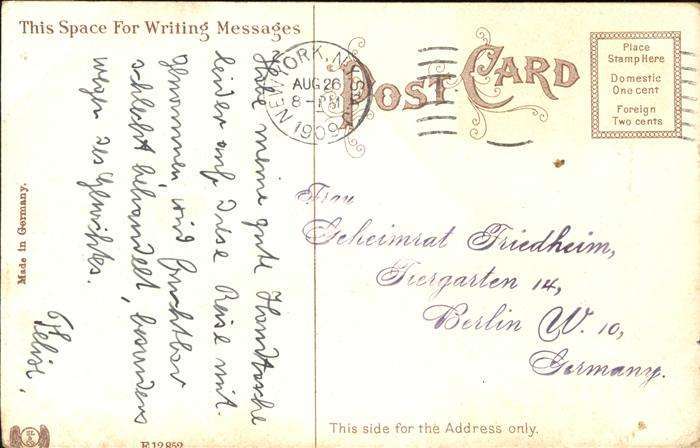 This Space For Writing Messages
Habe meine gute Handtasche
leider auf diese Reise mit
genommen und furchtbar
schlecht behandelt, besonders
wegen des Gewichtes.
Made in Germany.
E 12852
POST CARD
NEW YORK, N.Y.
AUG 26
8-PM
1909
Place
Stamp Here
Domestic
One cent
Foreign
Two cents
Frau
Geheimrat Friedheim,
Tiergarten 14,
Berlin W. 10,
Germany.
This side for the Address only.